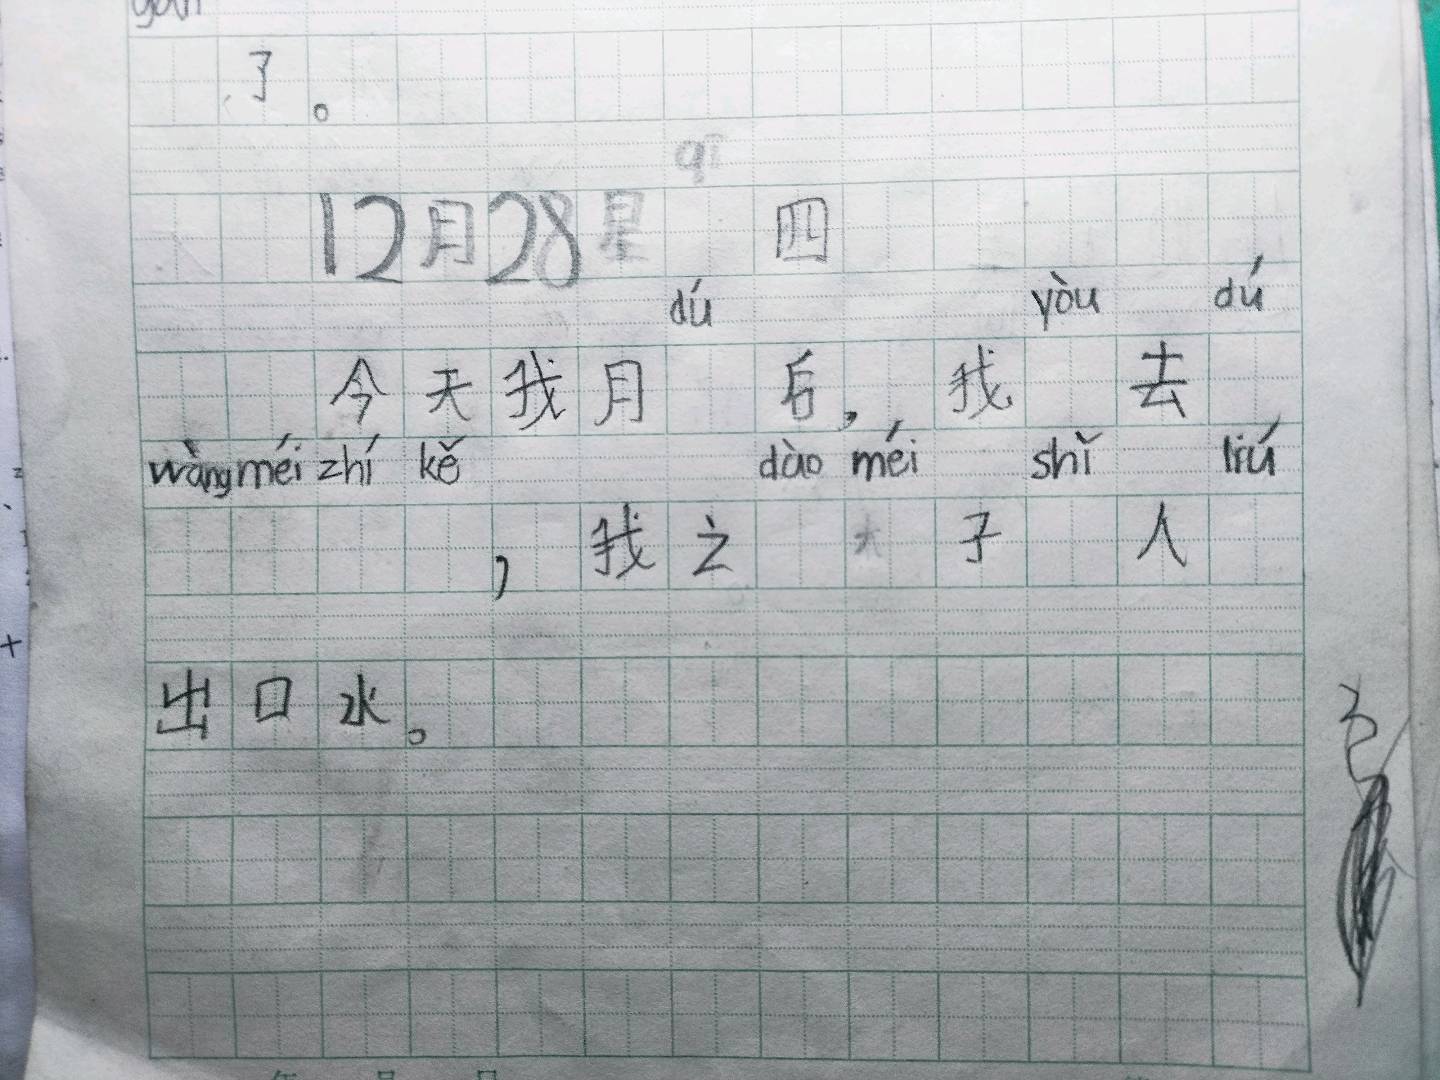 了。
qī
12月28星 四
dú yòu dú
今天我月 后，我 去
wàng méi zhí kě dào méi shǐ liú
，我之 大子 人
出口水。